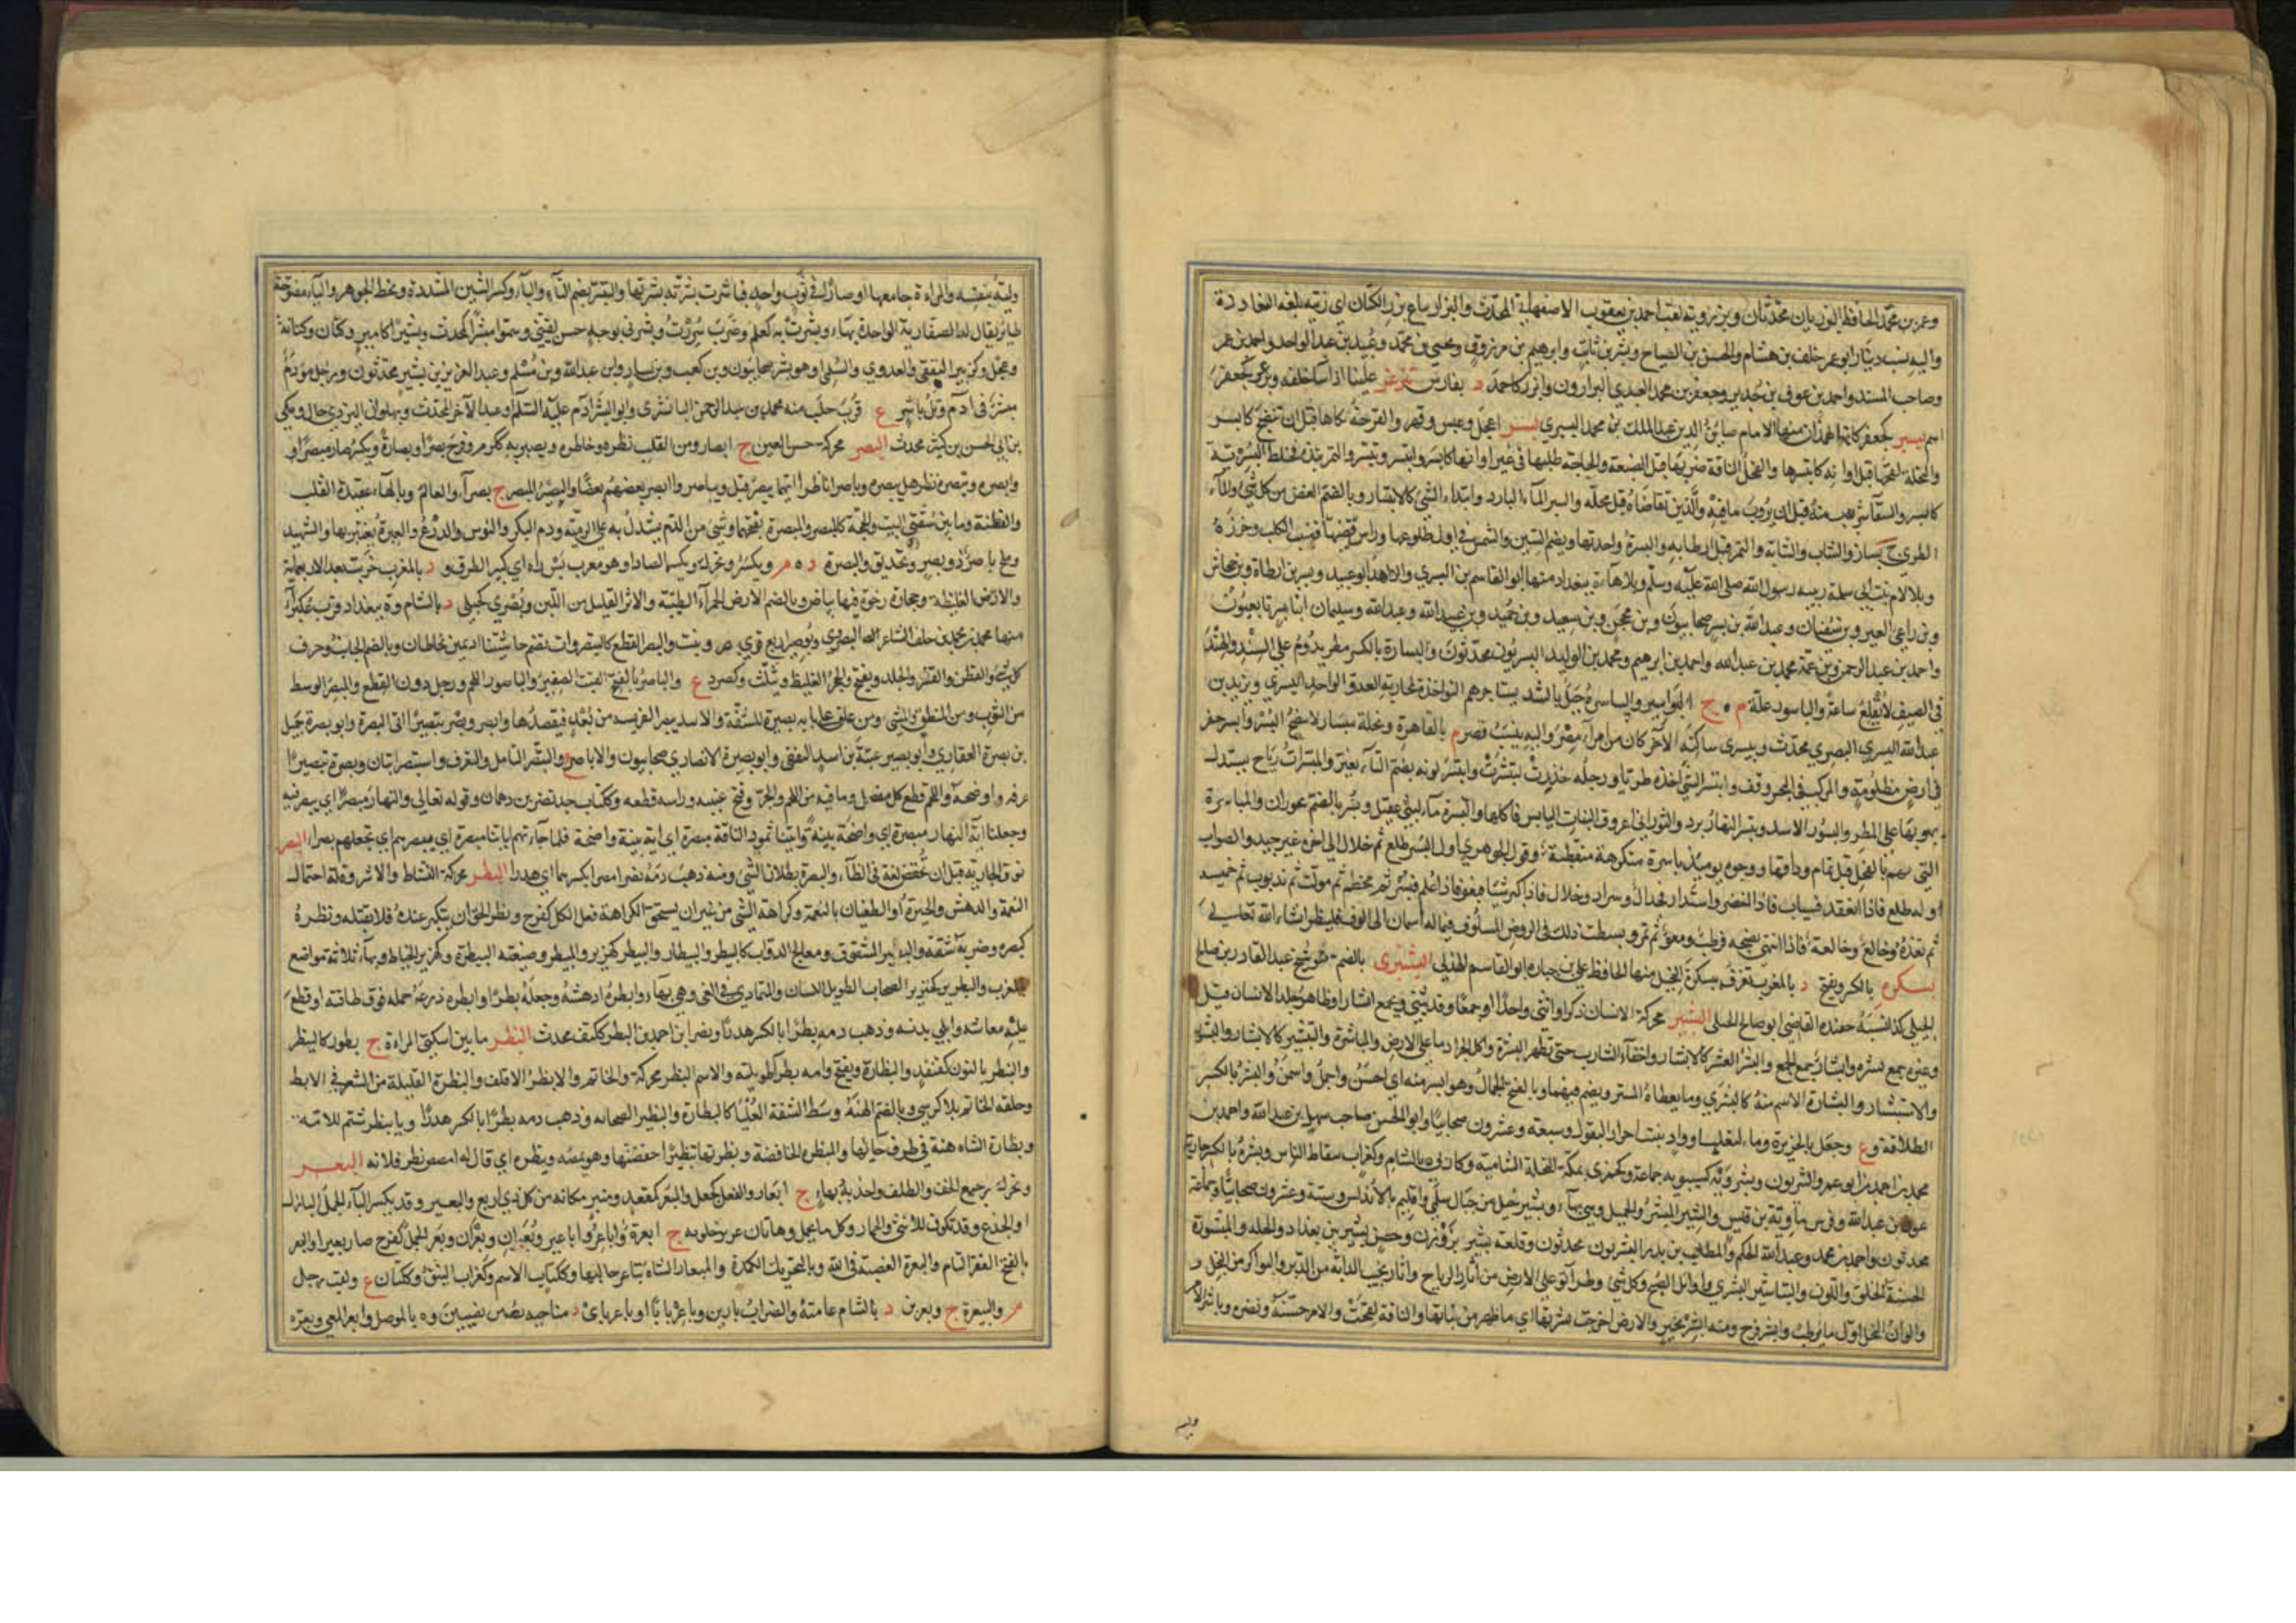 وعمر بن محمد الحافظ البزريان محدثان وبزرويه لقب احمد بن يعقوب الاصفهاني المحدث والبزار بياع بزر الكتان اي زيته بلغة البغاددة
واليه نسب دينار ابو عمر خلف بن هشام والحسن بن الصباح وبشر بن ثابت وابرهيم بن مرزوق ويحيى بن محمد وعبيد بن عبد الواحد واحمد بن عمر
وصاحب المسند واحمد بن عوف بن جدير وجعفر بن محمد العبدي البزارون وابزر كاحمد د بفارس بزعر علينا اذا ساء خلقه وبزعر كجعفر
اسم بيسر كجعفر كانة همذان منها الامام صاين الدين عبد الملك بن محمد البسري بسر اعجل وعبس وقهر والقرحة نكاها قبل ان تنضج كابسر
والنخلة لقحها قبل اوانه كابتسرها والفحل الناقة ضربها قبل الضبعة والحاجة طلبها في غير اوانها كابسر وابتسر وتبسر والتمر نبذه فخلط البسر به
كابسر والسقاء شرب منه قبل ان يروب ما فيه والدين تقاضاه قبل محله والبسر الماء البارد وابتداء الشيء كالابتسار وبالضم الغض من كل شيء والماء
الطري ج بسار والشاب والشابة والتمر قبل ارطابه والبسرة واحدتها ويضم السين والشمس في اول طلوعها وراس قضيب الكلب وخرزة
وبلا لام بنت ابي سلمة ربيبة رسول الله صلى الله عليه وسلم وبلا هاء ة ببغداد منها ابو القاسم بن البسري والزاهد ابو عبيد وبسر بن ارطاة وبن جحاش
وبن راعي العير وبن سفيان وعبد الله بن بسر صحابيون وابن محجن وبن سعيد وبن حميد وبن عبيد الله وعبد الله وسليمان ابنا بسر تابعيون
واحمد بن عبد الرحمن وبن عمه محمد بن عبد الله واحمد بن ابرهيم ومحمد بن الوليد البسريون محدثون والبسارة بالكسر مطر يدوم على السند والهند
في الصيف لا يقلع ساعة والباسور علة م ج البواسير والبياسرة جيل بالسند يستاجرهم النواخذة لمحاربة العدو الواحد البيسري ويزيد بن
عبد الله البيسري البصري محدث وبيسري ساكنة الاخر كان من امراء مصر واليه ينسب قصر م بالقاهرة ونخلة مبسار لا ينضج البسر وابسر حفر
في ارض مظلومة والمركب في البحر وقف وابتسر الشيء اخذه طريا ورجله خدرت كتبسرت وابتسر لونه بضم التاء تغير والمبسرات رياح يستدل
بهبوبها على المطر والبسور الاسد وتبسر النهار برد والثور اتى عروق النبات اليابس فاكلها والبسرة ماء لبني عقيل وبسر بالضم ة بحوران والمباسرة
التي تهم بالفحل قبل تمام وداقها ووجوه يومئذ باسرة متكرهة متقطبة وقول الجوهري اول البسر طلع ثم خلال الى اخره غير جيد والصواب
اوله طلع فاذا انعقد فسياب فاذا اخضر واستدار فجدال وسراد وخلال فاذا كبر شيئا فبغو فاذا عظم فبسر ثم مخطم ثم موكت ثم تذنوب ثم جمسة
ثم ثعدة وخالع وخالعة فاذا انتهى نضجه فرطب ومعو ثم تمر وبسطت ذلك في الروض المسلوف فيما له اسمان الى الالوف فلينظر ان شاء الله تعالى
بسكرة بالكسر ويفتح د بالمغرب تعرف ببسكرة النخيل منها الحافظ علي بن جبارة ابو القاسم الهذلي البشتيري بالضم شيخ عبد القادر بن صالح
الجيلي كذا نسبه حفيده القاضي ابو صالح الجيلي البشر محركة الانسان ذكرا او انثى واحدا او جمعا وقد يثنى ويجمع ابشارا وظاهر جلد الانسان قيل
وغيره جمع بشرة وابشار جمع الجمع والبشر القشر كالابشار واحفاء الشارب حتى تظهر البشرة واكل الجراد ما على الارض والمباشرة والتبشير كالابشار والبشور
والاستبشار والبشارة الاسم منه كالبشرى وما يعطاه المبشر ويضم فيهما وبالفتح الجمال وهو ابشر منه اي احسن واجمل واسمن والبشر بالكسر
الطلاقة و ع وجبل بالجزيرة وماء لتغلب وواد ينبت احرار البقول وسبعة وعشرون صحابيا وابو الحسن صاحب سهل بن عبد الله واحمد بن
محمد بن احمد بن ابو عمرو البشريون وبشرويه كسيبويه جماعة وكحبزى بمكة النخلة الشامية وكارلى ة بالشام وكغراب سقاط الناس وبشرة بالكسر جارية
عون بن عبد الله وفرس ماوية بن قيس والبشير المبشر والجميل وهي بهاء وبشير جبل من جبال سلمى واقليم بالاندلس وستة وعشرون صحابيا وجماعة
محدثون واحمد بن محمد وعبد الله الحكم والمطلب بن بدر البشريون محدثون وقلعة بشير بزوزن وحصن بشير بين بغداد والحلة والمبشورة
الحسنة الخلق واللون والتباشير البشرى واوائل الصبح وكل شيء وطرائق على الارض من اثار الرياح واثار بجنب الدابة من الدبر والبواكر من النخل و
والوان النخل اول ما يرطب وابشر فرح ومنه ابشر بخير والارض اخرجت بشرتها اي ما ظهر من نباتها والناقة لقحت والامر حسنه ونضره وباشر الامر
وليه
وليه بنفسه والمراءة جامعها او صارا في ثوب واحد فباشرت بشرته بشرتها والتبشر بضم التاء والباء وكسر الشين المشددة وبخط الجوهر والباء مفتوحة
طائر يقال له الصفارية الواحدة بهاء وبشرت به كعلم وضرب سررت وبشرني بوجه حسن لقيني وسموا مبشرا كمحدث وبشيرا كامير وكتان وكتابة
وعجل وكزبير الثقفي والعدوي والسلمي او هو بشر صحابيون وبن كعب وبن يسار وابن عبد الله وبن مسلم وعبد العزيز بن بشير محدثون ورجل مؤدم
مبشر في ا د م وتل باشر ع قرب حلب منه محمد بن عبد الرحمن الباشري وابو البشر ادم عليه السلام وعبد الاخر المحدث وبهلوان اليزدي دجال ومكي
بن ابي الحسن بن كبشر محدث البصر محركة حس العين ج ابصار ومن القلب نظره وخاطره وبصر به ككرم وفرح بصرا وبصارة ويكسر صار مبصرا و
وابصره وتبصره نظر هل يبصره وباصرا نظرا ايهما يبصر قبل وتباصروا ابصر بعضهم بعضا والبصير المبصر ج بصراء والعالم وبالهاء عقيدة القلب
والفطنة وما بين شقتي البيت والحجة كالمبصر والمبصرة بفتحهما وشيء من الدم يستدل به على الرمية ودم البكر والترس والدرع والعبرة يعتبر بها والشهيد
ولمح باصر ذو بصر وتحديق والبصرة د ة م ويكسر ويحرك ويكسر الصاد او هو معرب بس راه اي كثير الطرق و د بالمغرب خربت بعد الاربعماية
والارض الغليظة وحجارة رخوة فيها بياض وبالضم الارض الحمراء الطيبة والاثر القليل من اللبن وبصرى كحبلى د بالشام و ة ببغداد قرب عكبراء
منها محمد بن محمد بن خلف الشاعر البصروي وبوصير اربع قرى بمصر ونبت والبصر القطع كالبصر وان تضم حاشيتا اديمين تخاطان وبالضم الجانب وحرف
كل شيء والقطن والقشر والجلد ويفتح والحجر الغليظ ويثلث وكصرد ع والباصر بالفتح القتب الصغير والباصور اللحم ورحل دون القطع والمبصر الوسط
من الثوب ومن المنطق والمشي ومن علق على بابه بصيرة للشقة والاسد يبصر الفريسة من بعد فيقصدها وابصر وبصر تبصيرا اتى البصرة وابو بصرة جميل
بن بصرة الغفاري وابو بصير عتبة بن اسيد الثقفي وابو بصيرة الانصاري صحابيون والاباصر ع والتبصر التامل والتعرف واستبصر استبان وبصره تبصيرا
عرفه واوضحه واللحم قطع كل مفصل وما فيه من اللحم والجرو فتح عينيه وراسه قطعه وككتاب جد نصر بن دهمان وقوله تعالى والنهار مبصرا اي يبصر فيه
وجعلنا اية النهار مبصرة اي واضحة بينة واتينا ثمود الناقة مبصرة اي اية بينة واضحة فلما جاءتهم اياتنا مبصرة اي تبصرهم اي تجعلهم بصراء البضر
نوف الجارية قبل ان تخفض لغة في الظاء والبضرة بطلان الشيء ومنه ذهب دمه بضرا مضرا بكسرهما اي هدرا البطر محركة النشاط والاشر وقلة احتمال
النعمة والدهش والحيرة او الطغيان بالنعمة وكراهة الشيء من غير ان يستحق الكراهة فعل الكل كفرح وبطر الحق ان يتكبر عنده فلا يقبله وبطره
كنصره وضربه شقه والبطير المشقوق ومعالج الدواب كالبيطر والبيطار والبيطر كهزبر والمبيطر وصنعته البيطرة وكهزبر الخياط وبهاء ثلاثة مواضع
بالمغرب والبطرير كخنزير الصخاب الطويل اللسان والمتمادي في الغي وهي بهاء وابطره ادهشه وجعله بطرا وابطره ذرعه حمله فوق طاقته او قطع
عليه معاشه وابلى بدنه وذهب دمه بطرا بالكسر هدرا ونصر بن احمد بن البطر ككتف محدث البظر ما بين اسكتي المراءة ج بظور كالبيظر
والبنظر بالنون كقنفذ والبظارة ويفتح وامه بظراء طويلته والاسم البظر محركة والخاتم والابظر الاقلف والبظرة القليلة من الشعر في الابط
وحلقة الخاتم بلا كرسي وبالضم الهنة وسط الشفة العليا كالبظارة والبظير الصخابة وذهب دمه بظرا بالكسر هدرا ويا بيظر شتم للامة
وبظارة الشاة هنة في طرف حيائها والمبظرة الخافضة وبظرتها تبظيرا خفضتها وهو يمصه ويبظره اي قال له امصص بظر فلانة البعر
ويحرك رجيع الخف والظلف واحدته بهاء ج ابعار والفعل كجعل والمبعر كمقعد ومنبر مكانه من كل ذي اربع والبعير وقد يكسر الباء الجمل البازل
او الجذع وقد تكون للانثى والحمار وكل ما يحمل وهاتان عن خالويه ج ابعرة واباعر واباعير وبعران وبعران وبعر الجمل كفرح صار بعيرا والبعر
بالفتح الفقر التام والبعرة الغضبة في الله وبالتحريك الكمرة والمبعار الشاة تباعر حالبها وككتاب الاسم وكغراب النبق وككتان ع ولقب رجل
م والبيعرة ج وبعرين د بالشام عامته والصواب بارين وباعربايا او باعرباى د بناحية نصيبين و ة بالموصل وابعر المعي وبعره